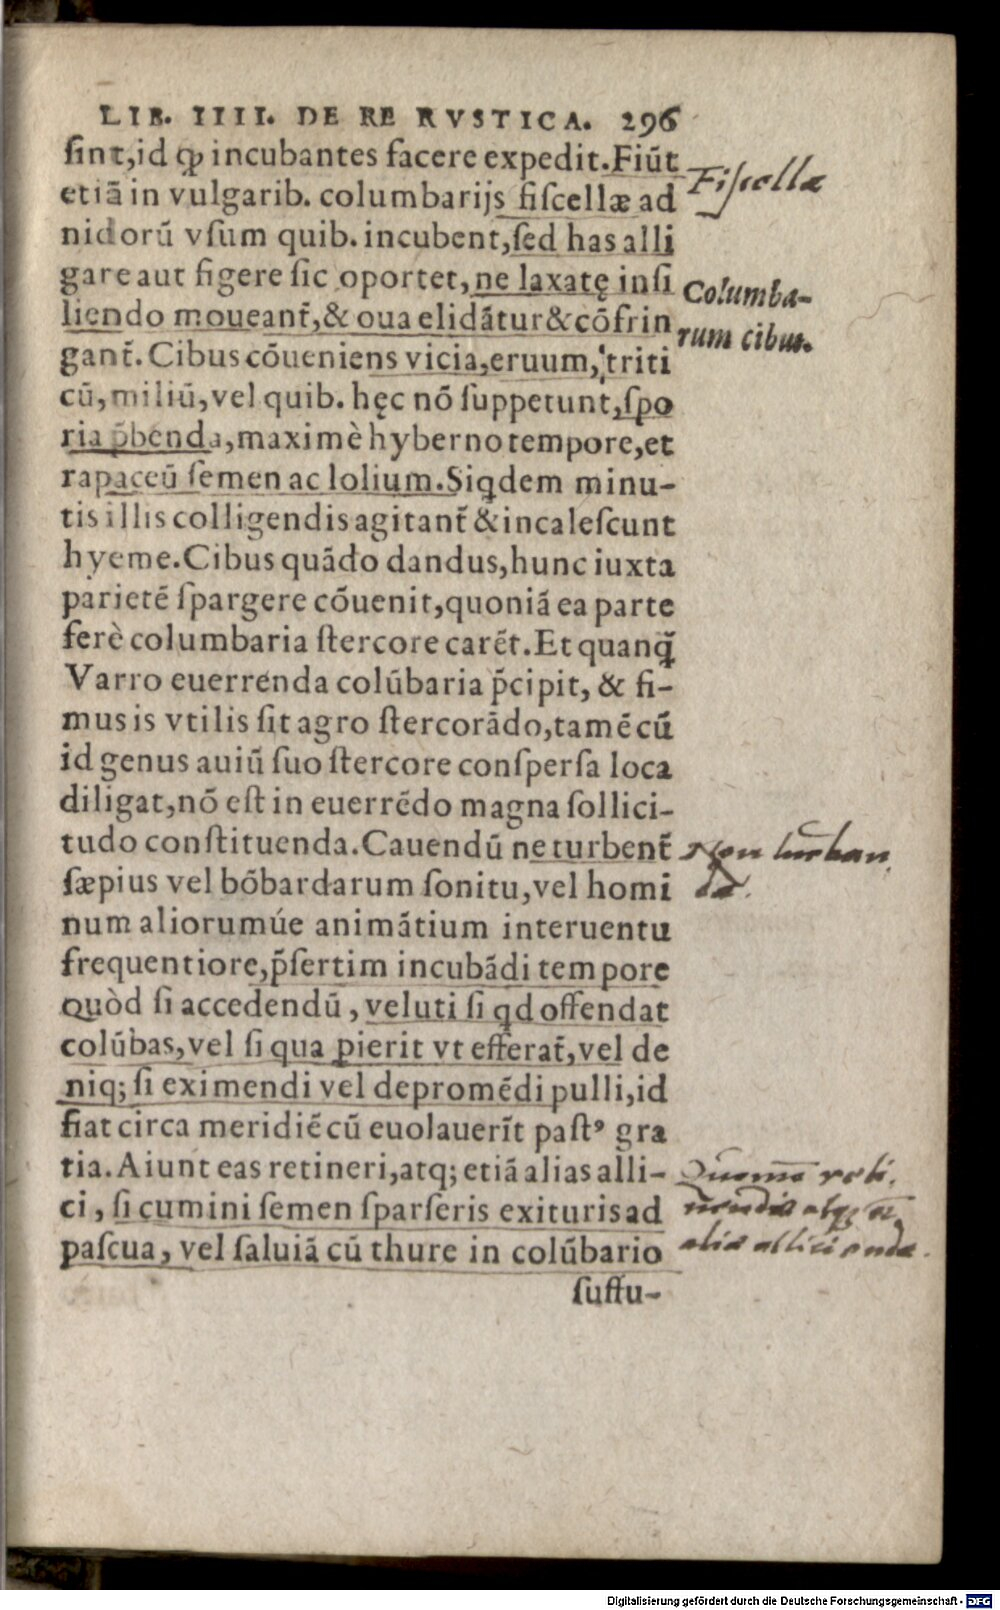 LIB. IIII. DE RE RVSTICA. 296
ſint,id ꝙ incubantes facere expedit.Fiūt
etiā in vulgarib. columbarijs fiſcellæ ad
nidorū vſum quib. incubent,ſed has alli
gare aut figere ſic oportet, ne laxatę inſi
liendo moueant̃,& oua elidātur&cōfrin
gant̃. Cibus cōueniens vicia,eruum, triti
cū, miliū, vel quib. hęc nō ſuppetunt,ſpo
ria p̃benda, maximè hyberno tempore,et
rapaceū ſemen ac lolium.Siq̣dem minu-
tis illis colligendis agitant̃ & incaleſcunt
hyeme.Cibus quādo dandus,hunc iuxta
parietē ſpargere cōuenit,quoniā ea parte
ferè columbaria ſtercore carēt.Et quanq̃
Varro euerrenda colūbaria p̃cipit, & fi-
mus is vtilis ſit agro ſtercorādo,tamē cū
id genus auiū ſuo ſtercore conſperſa loca
diligat,nō eſt in euerrēdo magna ſollici-
tudo conſtituenda. Cauendū ne turbent̃
ſæpius vel bōbardarum ſonitu, vel homi
num aliorumúe animātium interuentu
frequentiore,p̃ſertim incubādi tempore
Quòd ſi accedendū, veluti ſi qd offendat
colūbas, vel ſi qua ꝑierit vt efferat̃, vel de
niq; ſi eximendi vel depromēdi pulli, id
fiat circa meridiē cū euolauerīt paſtꝰ gra
tia. Aiunt eas retineri,atq; etiā alias alli-
ci, ſi cumini ſemen ſparſeris exituris ad
paſcua, vel ſaluiā cū thure in colūbario
ſuffu-
Fiſcellæ
Columba-
rum cibus.
Non turban
dæ.
Quomō reti-
nendæ atq;
aliæ alliciendæ.
Digitalisierung gefördert durch die Deutsche Forschungsgemeinschaft - DFG